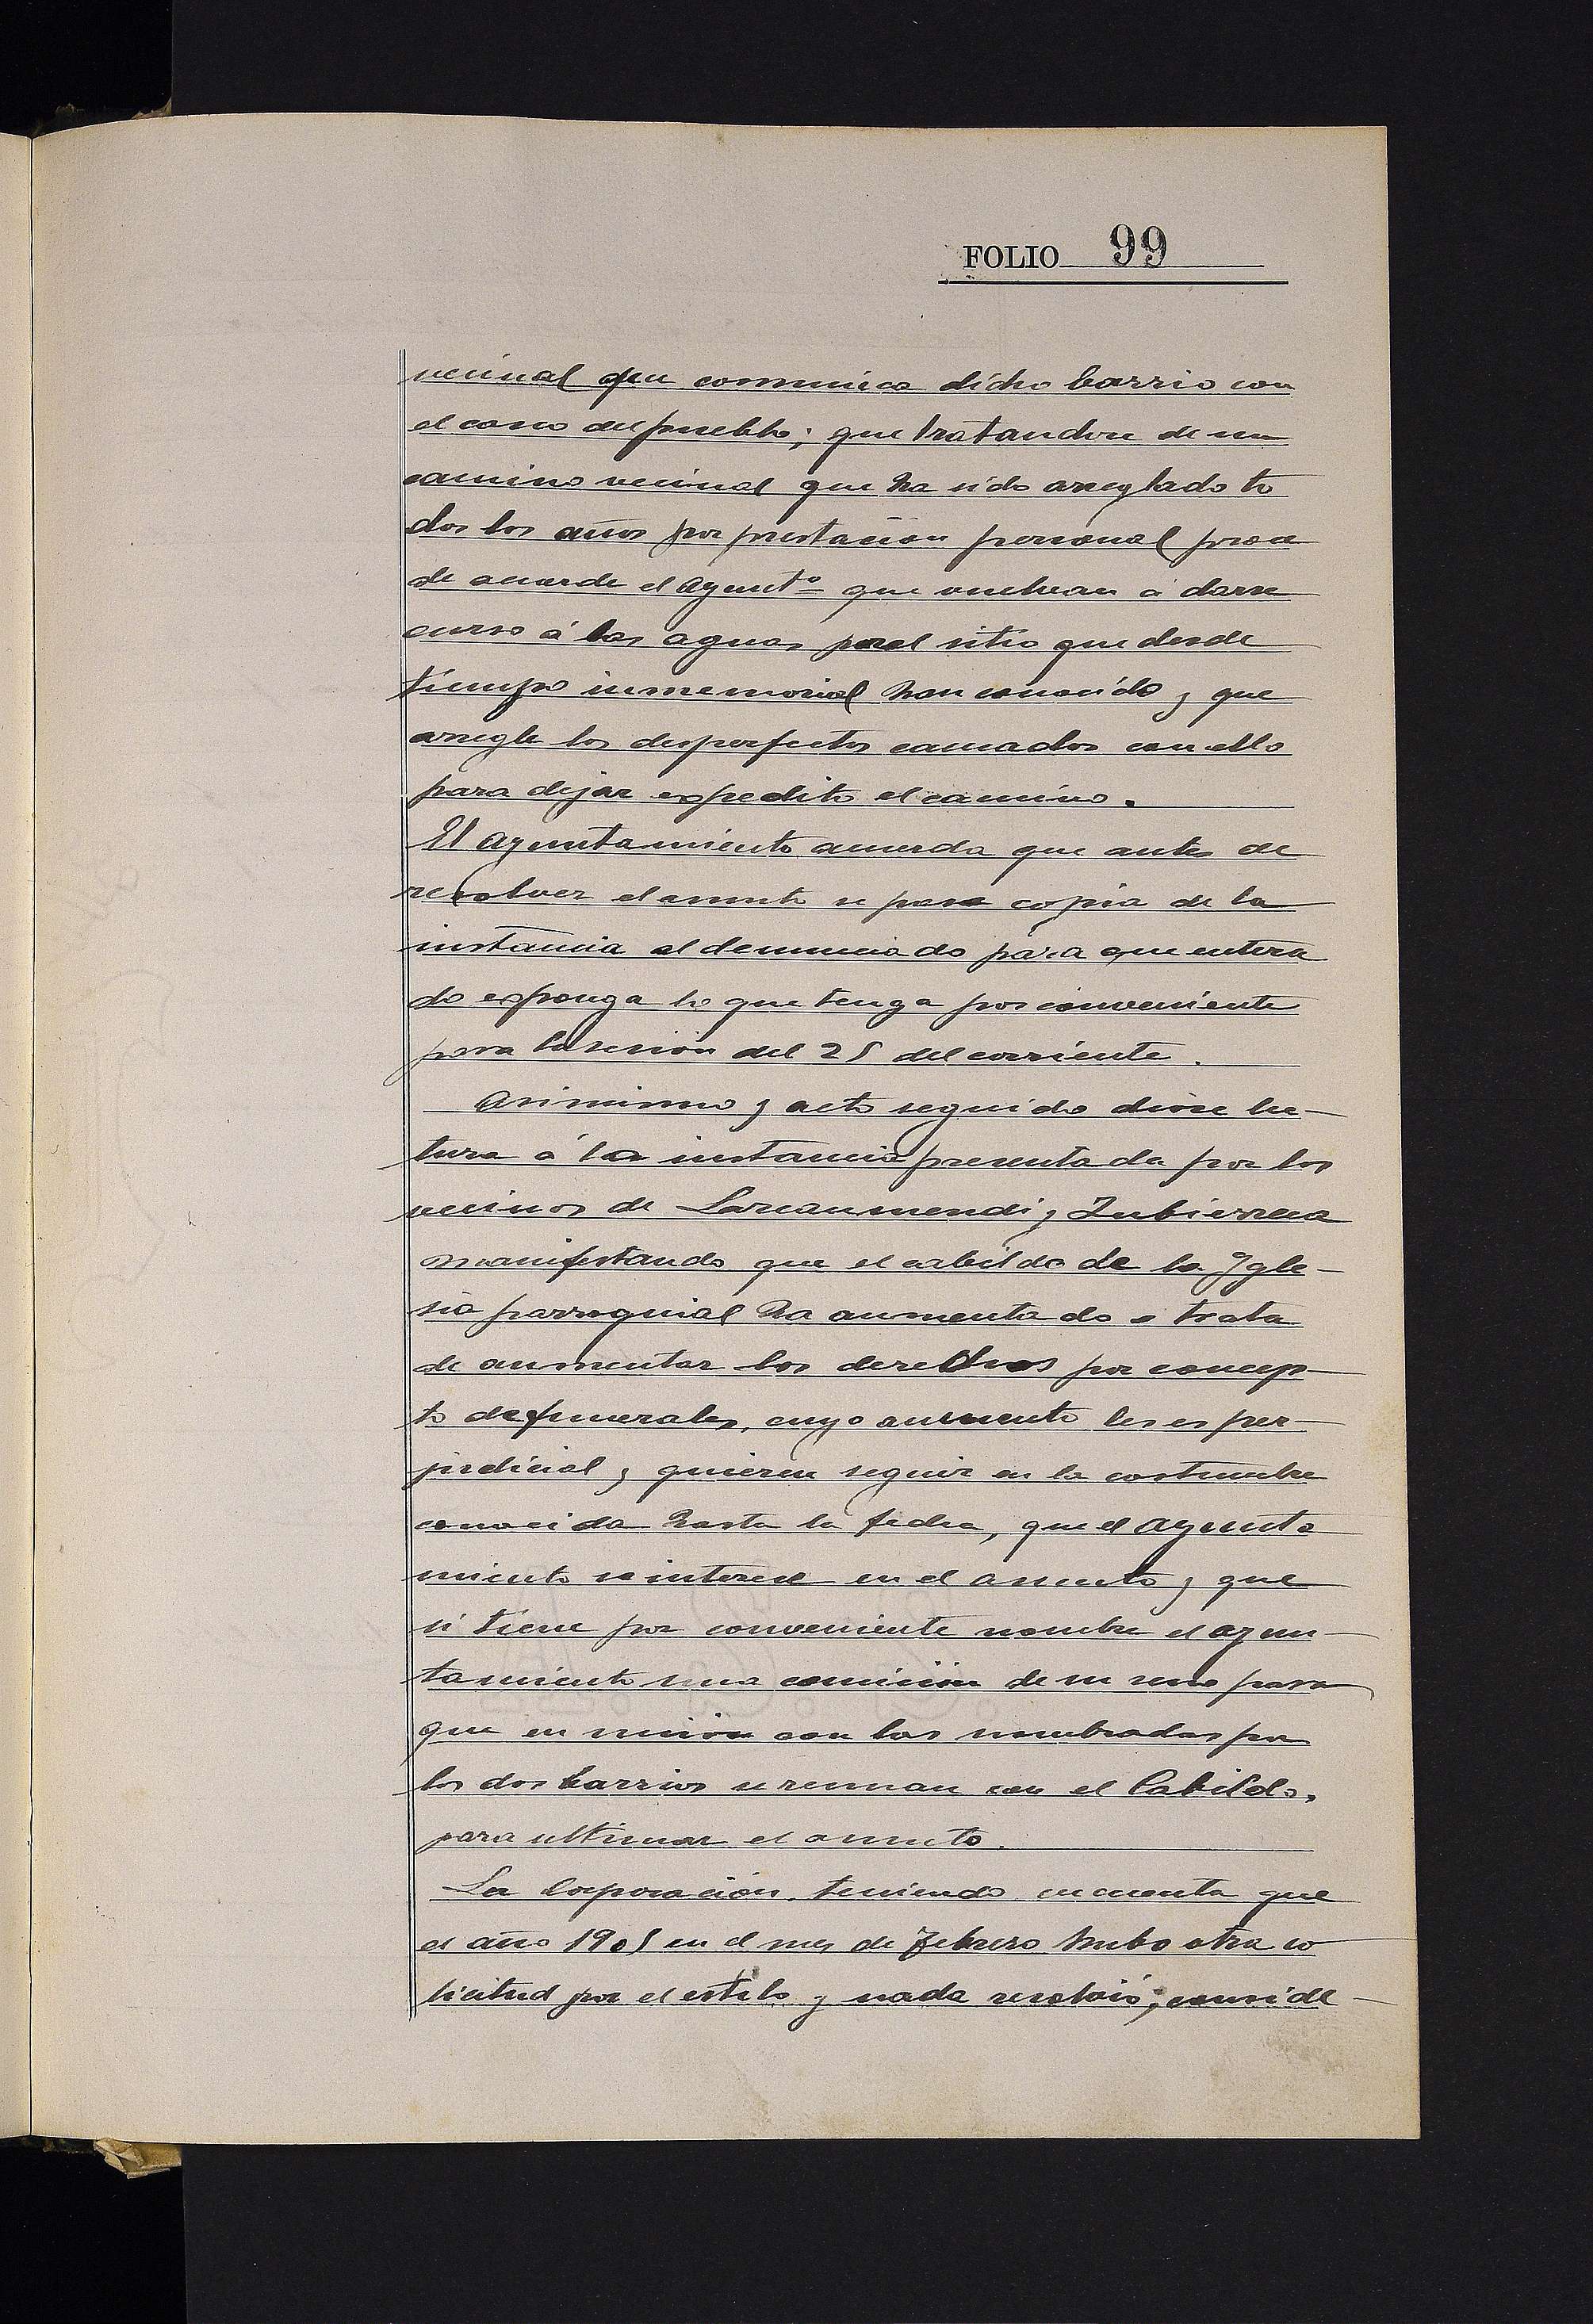 FOLIO 99
vecinal que comunica dicho barrio con
el casco del pueblo; que tratandose de un
camino vecinal que ha sido arreglado to
dos los años por prestación personal proce
de acuerde el Ayuntº que vuelvan á darse
curso á las aguas por el sitio que desde
tiempo inmemorial han conocido y que
arregle los desperfectos causados con ello
para dejar expedito el camino.
El Ayuntamiento acuerda que antes de
resolver el asunto se pase copia de la
instancia al denunciado para que entera
do exponga lo que tenga por conveniente
para la sesión del 25 del corriente.
Asimismo y acto seguido dióse lec-
tura á la instancia presentada por los
vecinos de Larcanmendi y Zubierreca
manifestando que el cabildo de la Igle-
sia parroquial ha aumentado o trata
de aumentar los derechos por concep-
to de funerales, cuyo aumento les es per-
judicial y quieren seguir en la costumbre
conocida hasta la fecha, que el Ayunta
miento se interese en el asunto y que
si tiene por conveniente nombre el ayun-
tamiento una comisión de su seno para
que en unión con las nombradas por
los dos barrios se reunan con el Cabildo,
para ultimar el asunto.
La Corporación, teniendo en cuenta que
el año 1905 en el mes de Febrero hubo otra so
licitud por el estilo y nada resolvió, conside-